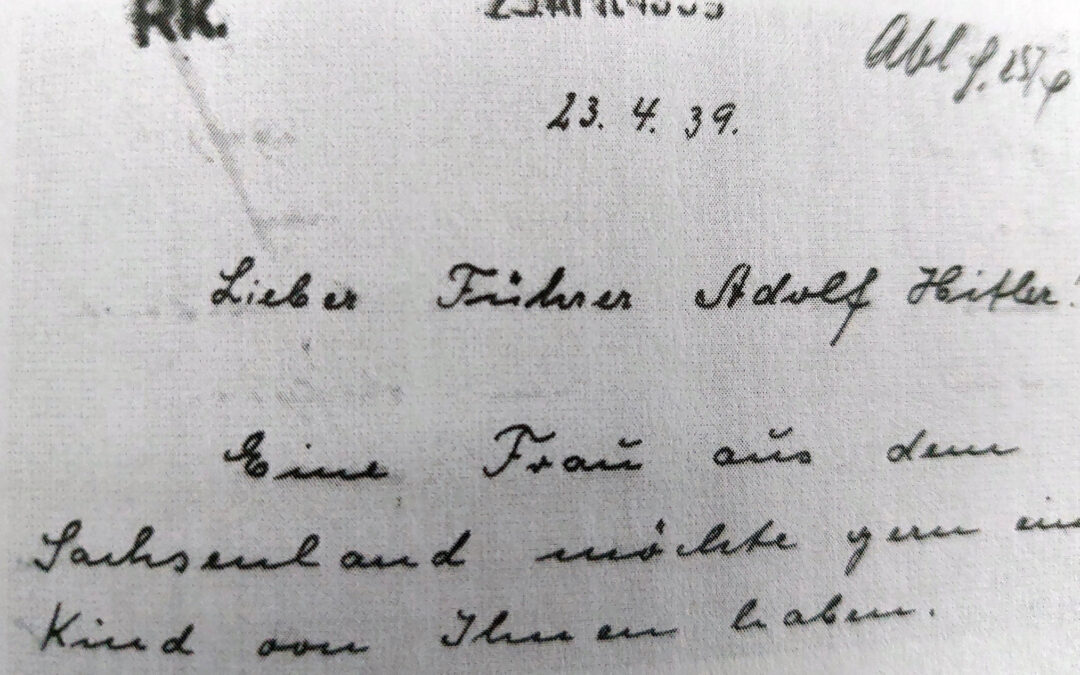 RK.
Abl
23. 4. 39.
Lieber Führer Adolf Hitler!
Eine Frau aus dem
Sachsenland möchte gern ein
Kind von Ihnen haben.